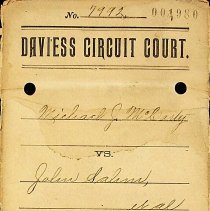 No. 7992. 001980
DAVIESS CIRCUIT COURT.
Michael J. McCarty
VS.
John
et al